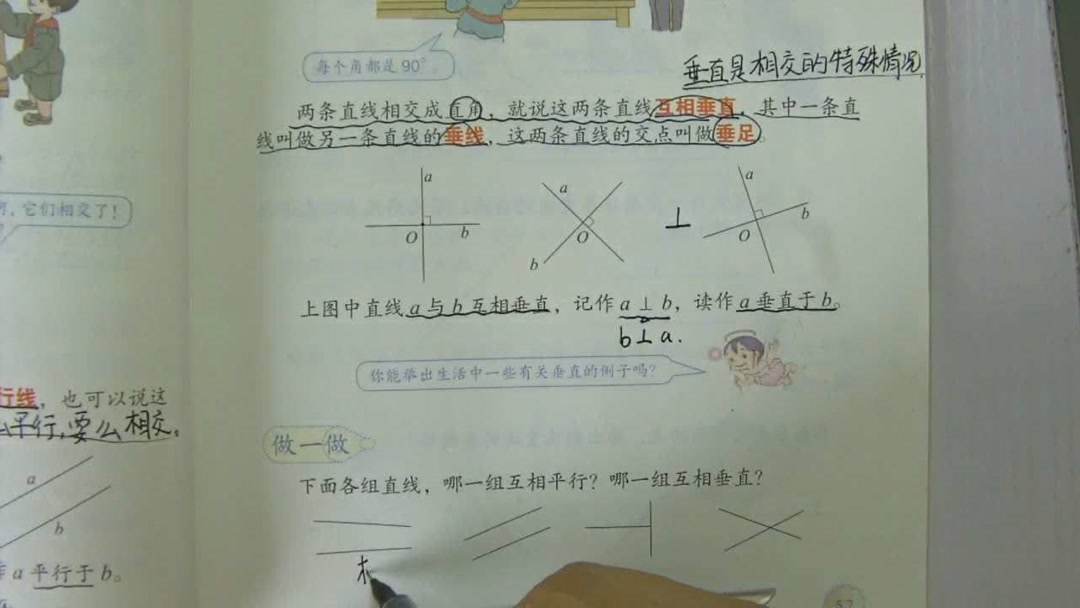 每个角都是90°。
垂直是相交的特殊情况
两条直线相交成直角，就说这两条直线互相垂直，其中一条直
线叫做另一条直线的垂线，这两条直线的交点叫做垂足。
，它们相交了！
a
O
b
a
O
b
⊥
a
O
b
上图中直线a与b互相垂直，记作a⊥b，读作a垂直于b。
b⊥a.
你能举出生活中一些有关垂直的例子吗？
行线，也可以说这
平行，要么相交。
a
b
a平行于b。
做一做
下面各组直线，哪一组互相平行？哪一组互相垂直？